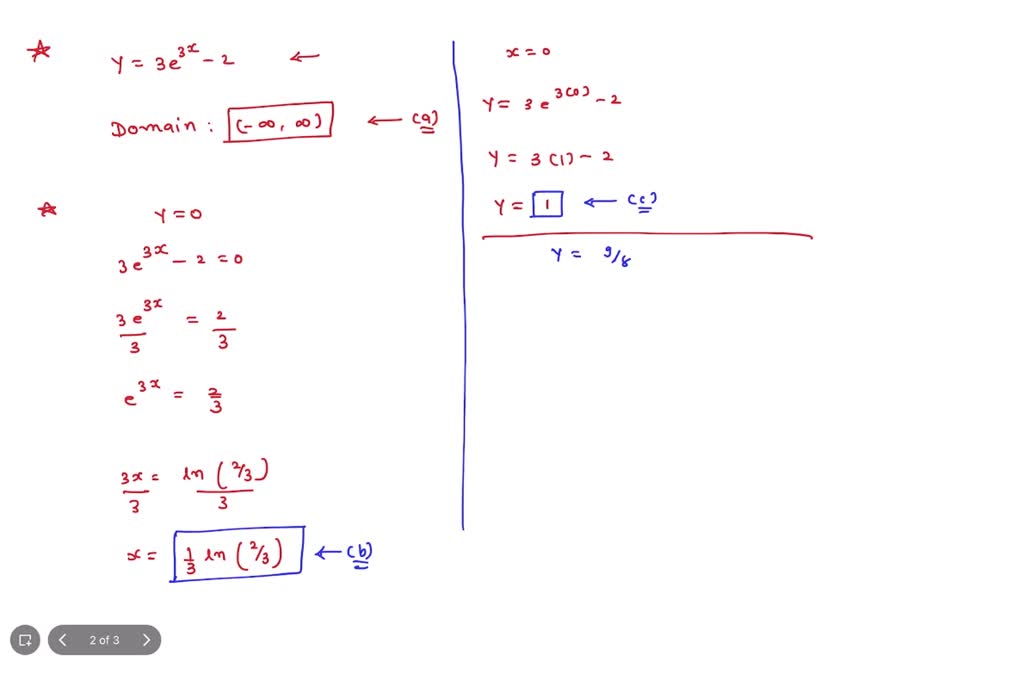 Y = 3e^3x - 2 ←
Domain : (-∞, ∞) ← (a)
Y = 0
3e^3x - 2 = 0
3e^3x/3 = 2/3
e^3x = 2/3
3x/3 = ln (2/3)/3
x = 1/3 ln (2/3) ← (b)
x = 0
Y = 3e^3(0) - 2
Y = 3(1) - 2
Y = 1 ← (c)
Y = 9/8
2 of 3